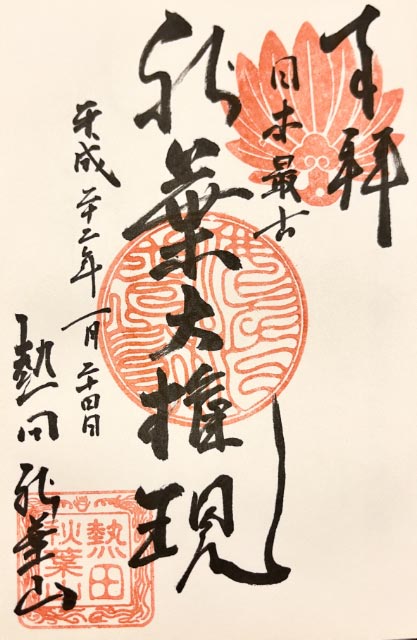 奉拝
日本最古
秋葉大権現
平成二十二年一月二十四日
熱田 秋葉山
熱田
秋葉山